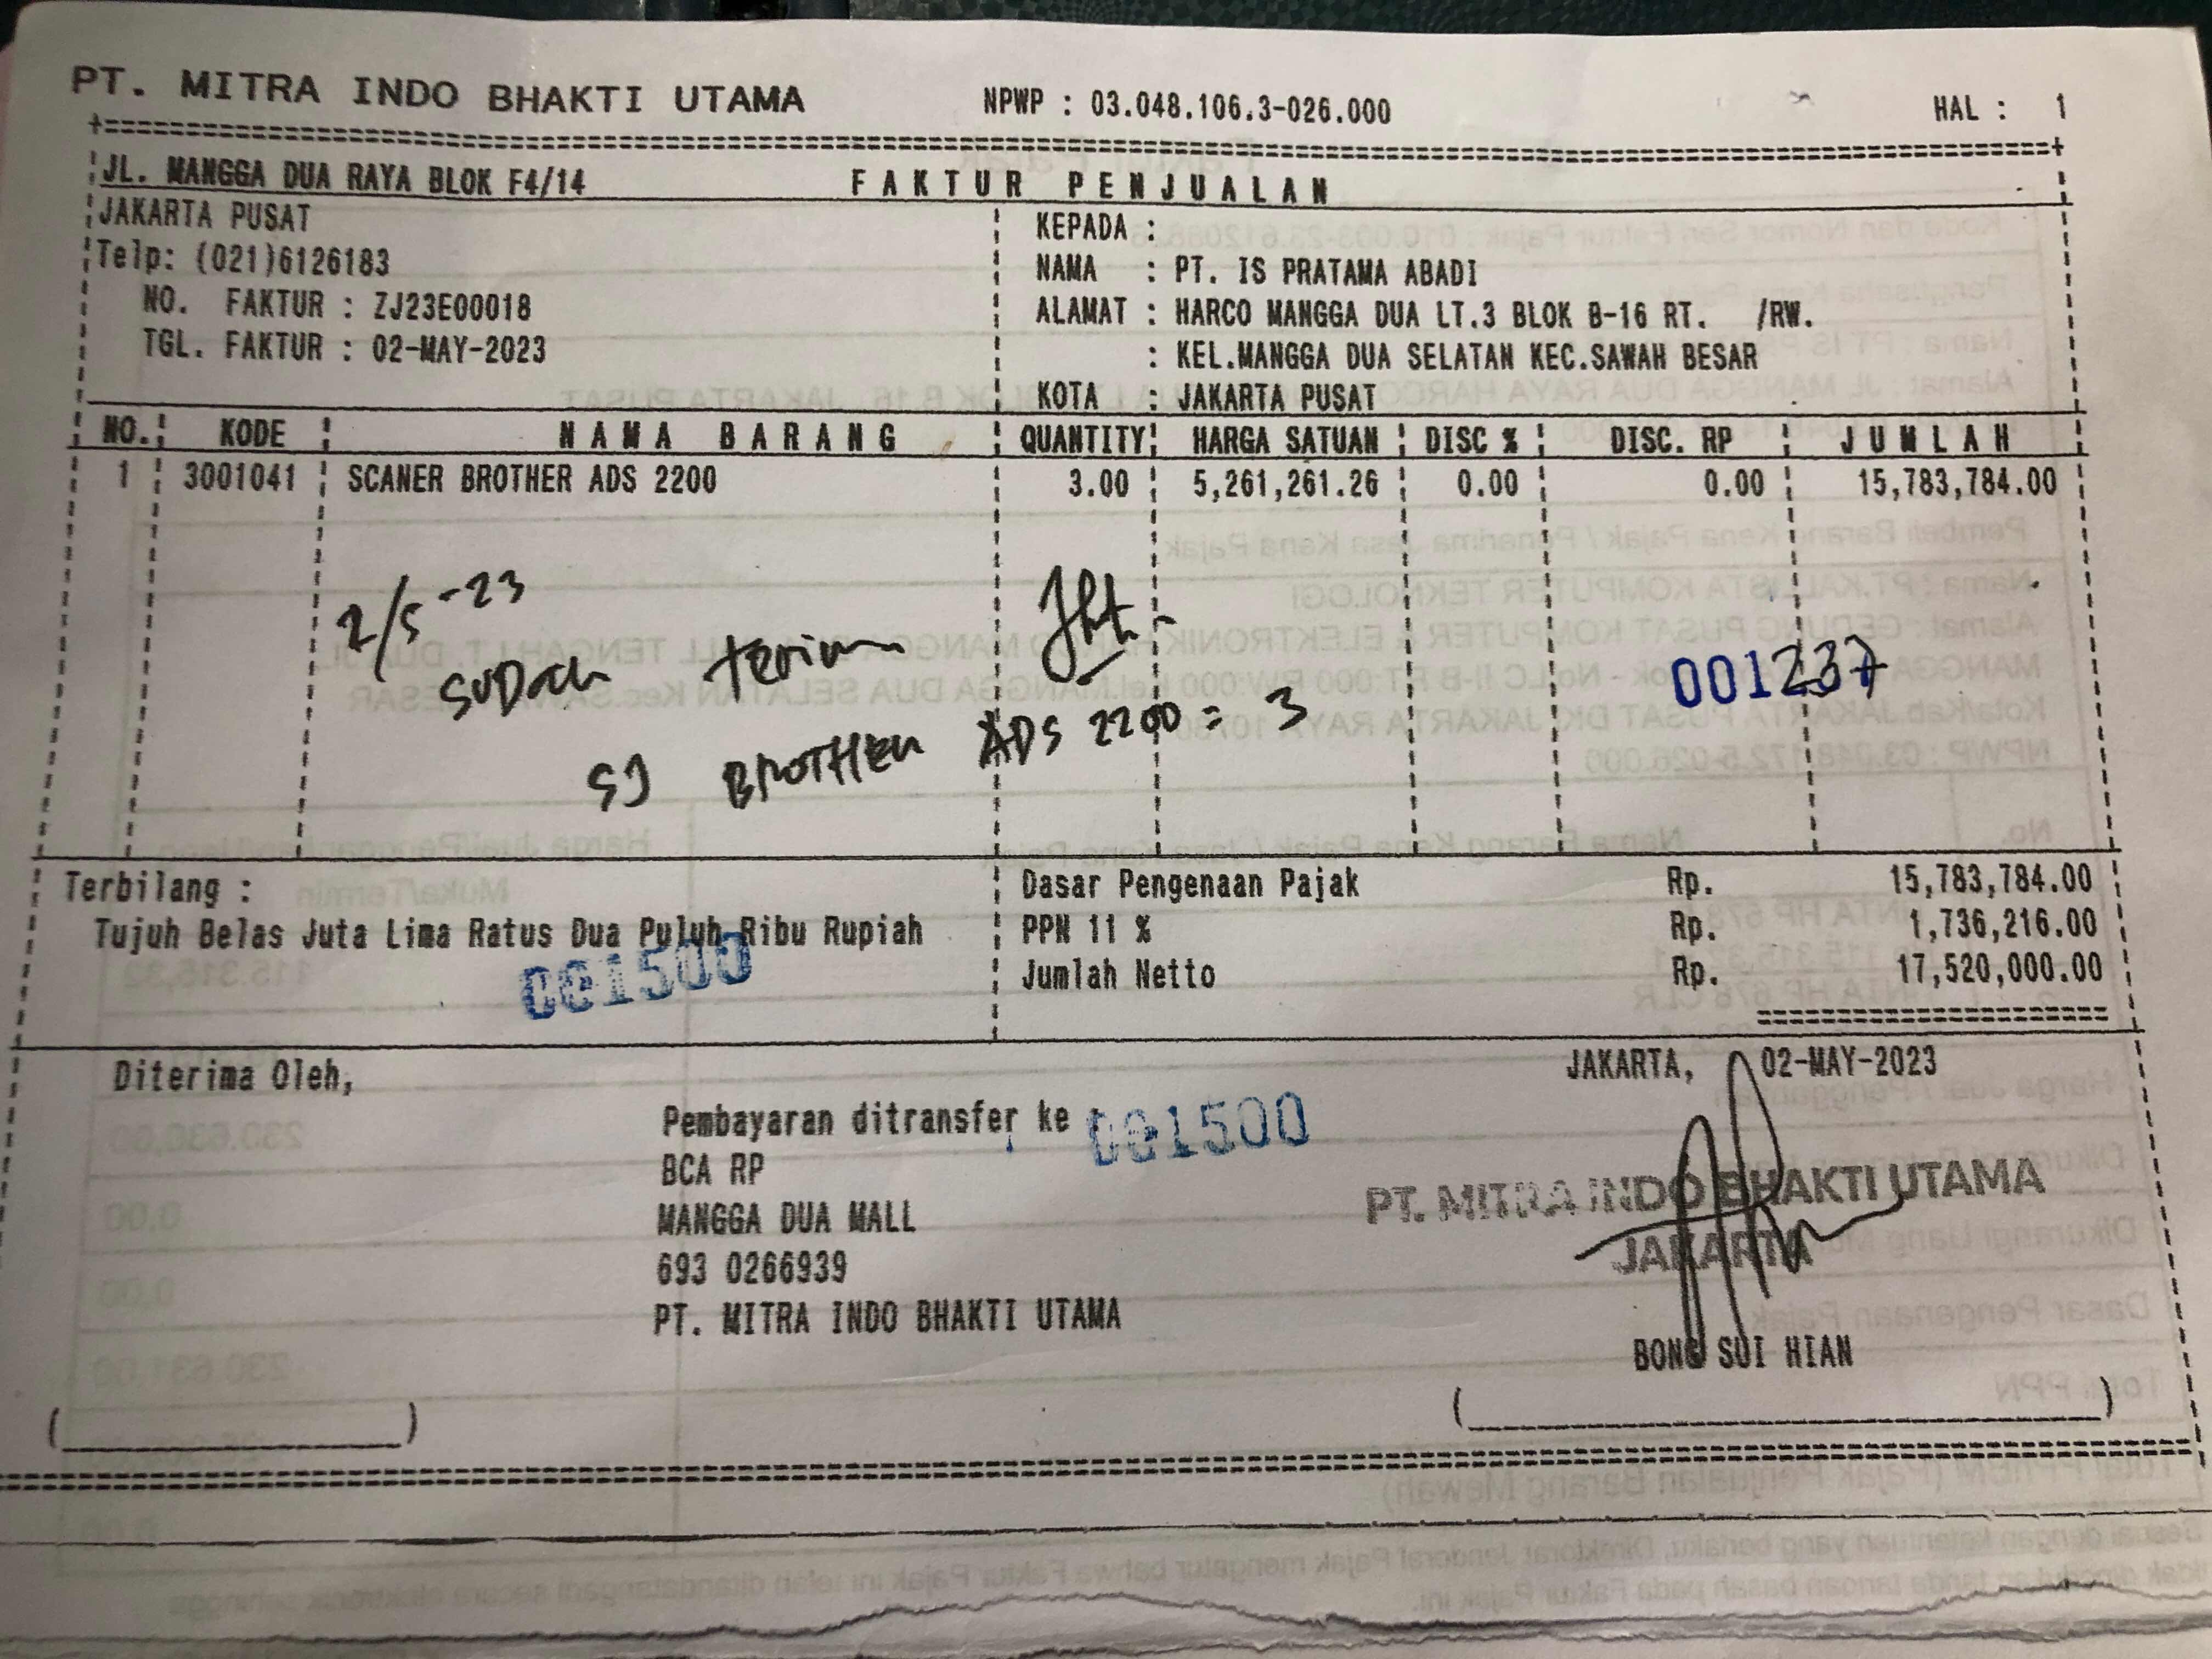 PT. MITRA INDO BHAKTI UTAMA NPWP : 03.048.106.3-026.000 HAL : 1
JL. MANGGA DUA RAYA BLOK F4/14 FAKTUR PENJUALAN
JAKARTA PUSAT
Telp: (021)6126183
NO. FAKTUR : ZJ23E00018
TGL. FAKTUR : 02-MAY-2023
KEPADA :
NAMA : PT. IS PRATAMA ABADI
ALAMAT : HARCO MANGGA DUA LT.3 BLOK B-16 RT. /RW.
: KEL.MANGGA DUA SELATAN KEC.SAWAH BESAR
KOTA : JAKARTA PUSAT
NO. KODE NAMA BARANG QUANTITY HARGA SATUAN DISC % DISC. RP JUMLAH
1 3001041 SCANER BROTHER ADS 2200 3.00 5,261,261.26 0.00 0.00 15,783,784.00
2/5-23
SUDAH
001237
BROTHER ADS 2200 = 3
Terbilang :
Tujuh Belas Juta Lima Ratus Dua Puluh Ribu Rupiah
001500
Dasar Pengenaan Pajak Rp. 15,783,784.00
PPN 11 % Rp. 1,736,216.00
Jumlah Netto Rp. 17,520,000.00
Diterima Oleh,
JAKARTA, 02-MAY-2023
Pembayaran ditransfer ke : 001500
BCA RP
MANGGA DUA MALL
693 0266939
PT. MITRA INDO BHAKTI UTAMA
PT. MITRA INDO BHAKTI UTAMA
JAKARTA
BONG SUI HIAN